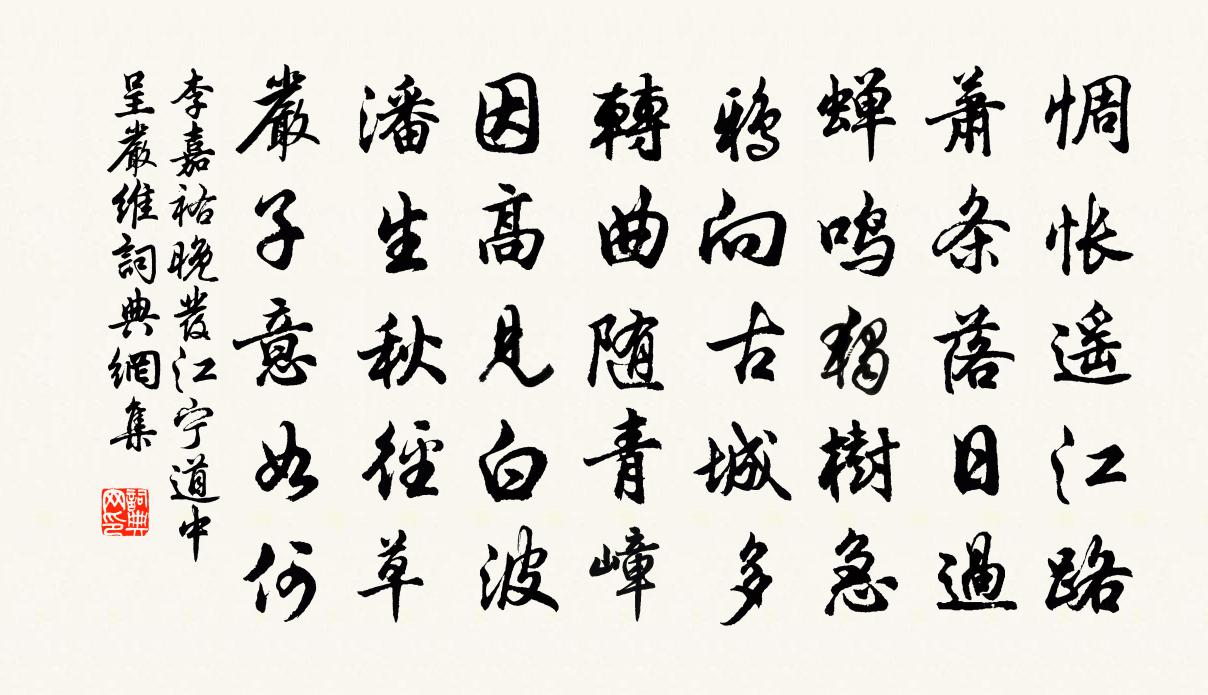 惆怅遥江路
萧条落日過
蝉鸣獨樹急
鸦向古城多
轉曲随青嶂
因高見白波
潘生秋徑草
嚴子意如何
李嘉祐晚發江宁道中
呈嚴維詞典網集
詞典网印